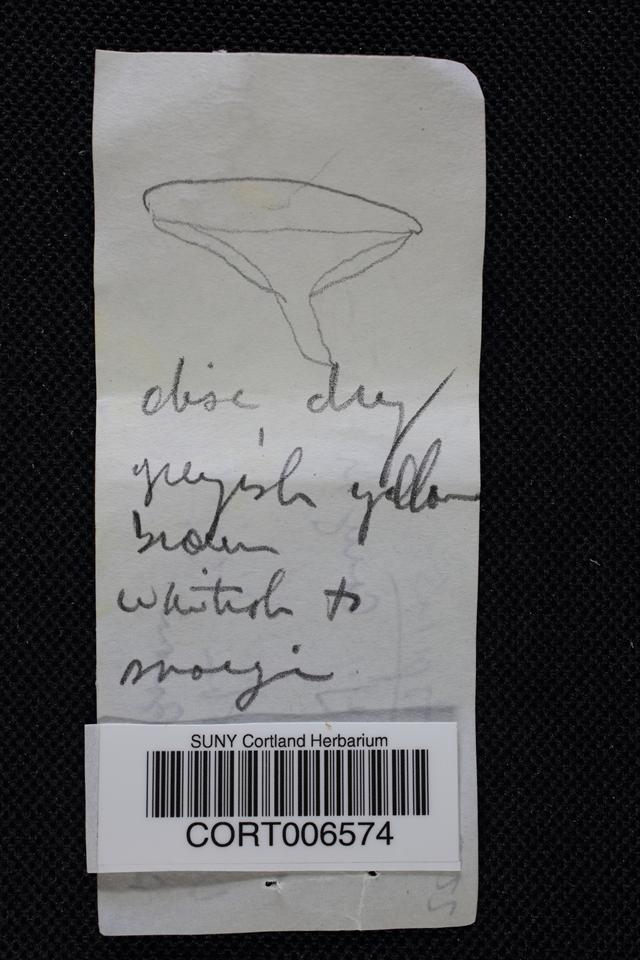 disc dry
greyish yellow
brown
whitish to
margin
SUNY Cortland Herbarium
CORT006574